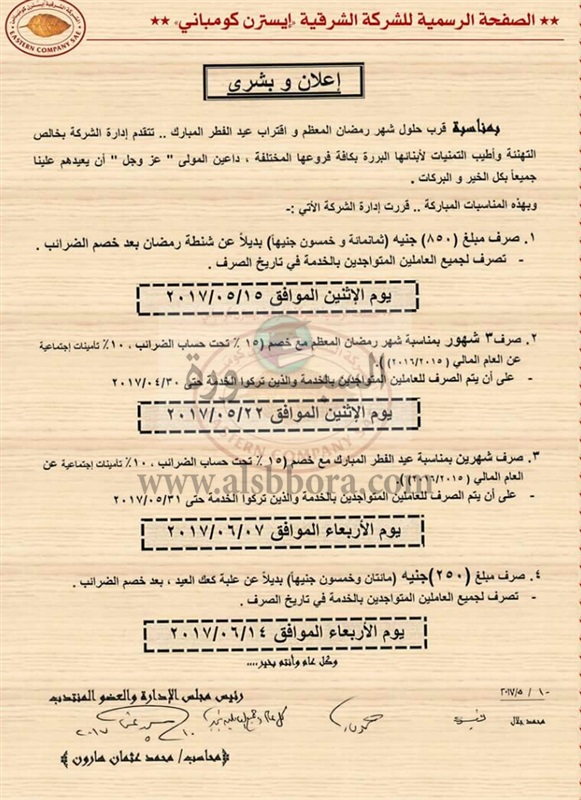 ★★ الصفحة الرسمية للشركة الشرقية "إيسترن كومباني" ★★
EASTERN COMPANY SAE
إعلان و بشرى
بمناسبة قرب حلول شهر رمضان المعظم و اقتراب عيد الفطر المبارك .. تتقدم إدارة الشركة بخالص
التهنئة وأطيب التمنيات لأبنائها البررة بكافة فروعها المختلفة ، داعين المولى " عز وجل " أن يعيدهم علينا
جميعاً بكل الخير و البركات .
وبهذه المناسبات المباركة .. قررت إدارة الشركة الأتي :-
١. صرف مبلغ (٨٥٠) جنيه (ثمانمائة و خمسون جنيهاً) بديلاً عن شنطة رمضان بعد خصم الضرائب .
- تصرف لجميع العاملين المتواجدين بالخدمة في تاريخ الصرف .
يوم الإثنين الموافق ٢٠١٧/٠٥/١٥
٢. صرف ٣ شهور بمناسبة شهر رمضان المعظم مع خصم (١٥ ٪ تحت حساب الضرائب ، ١٠٪ تأمينات إجتماعية
عن العام المالي (٢٠١٦/٢٠١٥))
- على أن يتم الصرف للعاملين المتواجدين بالخدمة والذين تركوا الخدمة حتى ٢٠١٧/٠٤/٣٠
يوم الإثنين الموافق ٢٠١٧/٠٥/٢٢
السبورة
www.alsbbora.com
EASTERN COMPANY SAE
٣. صرف شهرين بمناسبة عيد الفطر المبارك مع خصم (١٥ ٪ تحت حساب الضرائب ، ١٠٪ تأمينات إجتماعية عن
العام المالي (٢٠١٦/٢٠١٥))
- على أن يتم الصرف للعاملين المتواجدين بالخدمة والذين تركوا الخدمة حتى ٢٠١٧/٠٥/٣١
يوم الأربعاء الموافق ٢٠١٧/٠٦/٠٧
٤. صرف مبلغ (٢٥٠) جنيه (مائتان وخمسون جنيهاً) بديلاً عن علبة كعك العيد ، بعد خصم الضرائب .
- تصرف لجميع العاملين المتواجدين بالخدمة في تاريخ الصرف .
يوم الأربعاء الموافق ٢٠١٧/٠٦/١٤
وكل عام وأنتم بخير....
٢٠١٧/٥/١٠
رئيس مجلس الإدارة والعضو المنتدب
محمد جلال
كل عام وجميع العاملين بخير
١٠/٥/٢٠١٧
﴿محاسب/ محمد عثمان هارون﴾